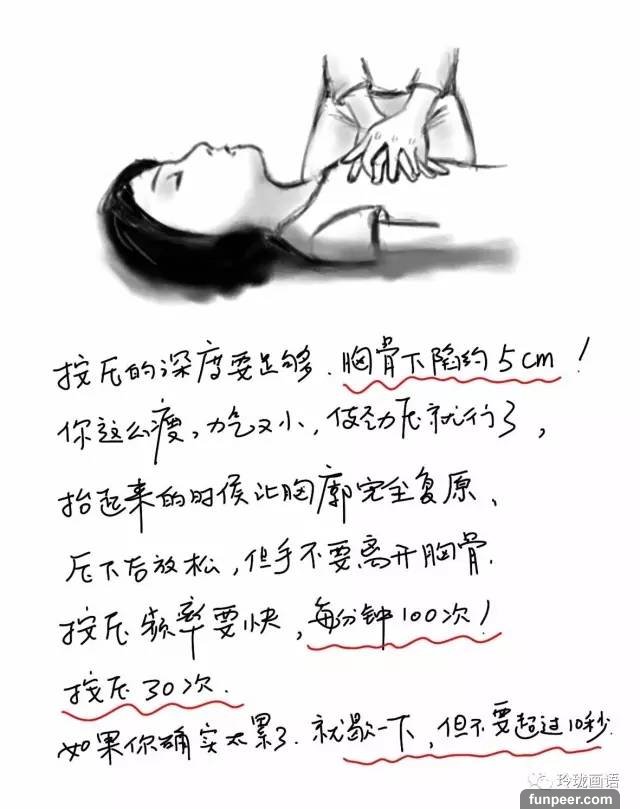 按压的深度要足够.胸骨下陷约5cm！
你这么瘦，力气又小，使劲压就行了，
抬起来的时候让胸廓完全复原、
压下后放松，但手不要离开胸骨.
按压频率要快，每分钟100次！
按压30次.
如果你确实太累了.就歇一下，但不要超过10秒.
玲珑画语
funpeer.com